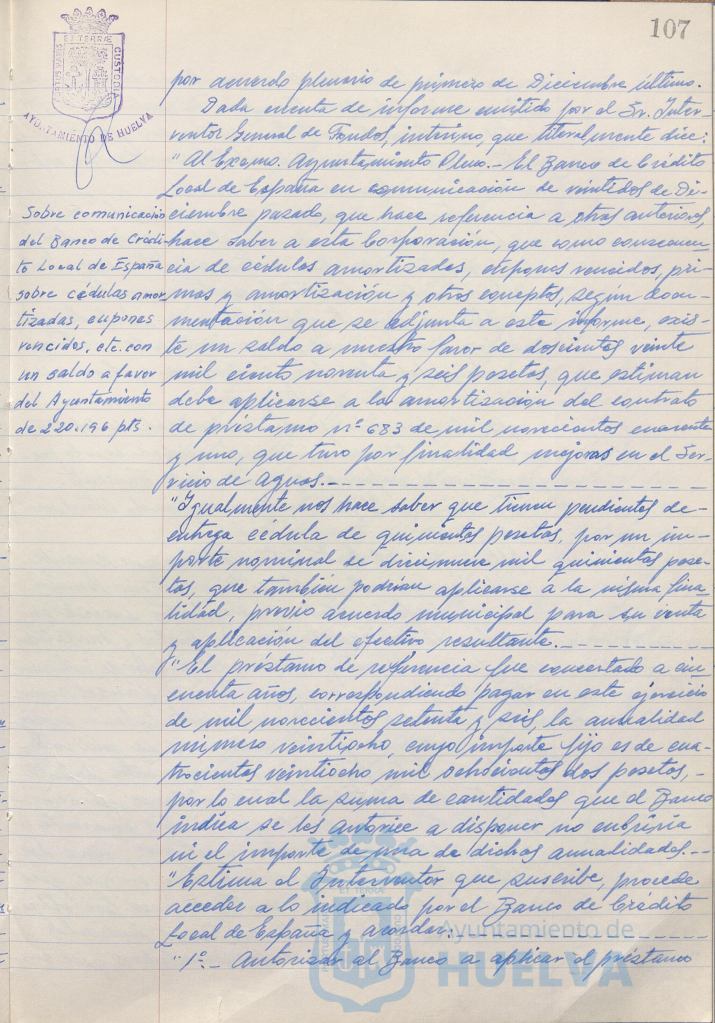 107
PORTUS MARIS ET TERRÆ CUSTODIA
AYUNTAMIENTO DE HUELVA
por acuerdo plenario de primero de Diciembre último.
Dada cuenta de informe emitido por el Sr. Inter-
ventor General de Fondos, interino, que literalmente dice:
"Al Excmo. Ayuntamiento Pleno.- El Banco de Crédito
Local de España en comunicación de veintidos de Di-
ciembre pasado, que hace referencia a otras anteriores,
hace saber a esta Corporación, que como consecuen-
cia de cédulas amortizadas, cupones vencidos, pri-
mas y amortización y otros conceptos, según docu-
mentación que se adjunta a este informe, exis-
te un saldo a nuestro favor de doscientas veinte
mil ciento noventa y seis pesetas, que estiman
debe aplicarse a la amortización del contrato
de préstamo nº 683 de mil novecientos cuarenta
y uno, que tuvo por finalidad mejoras en el Ser-
vicio de Aguas.-
Sobre comunicación
del Banco de Crédi-
to Local de España
sobre cédulas amor-
tizadas, cupones
vencidos, etc. con
un saldo a favor
del Ayuntamiento
de 220.196 pts.
"Igualmente nos hace saber que tienen pendientes de
entrega cédula de quinientas pesetas, por un im-
porte nominal de diecinueve mil quinientas pese-
tas, que también podrían aplicarse a la misma fina-
lidad, previo acuerdo municipal para su venta
y aplicación del efectivo resultante.-
"El préstamo de referencia fue concertado a cin-
cuenta años, correspondiendo pagar en este ejercicio
de mil novecientos setenta y seis, la anualidad
número veintiocho, cuyo importe fijo es de cua-
trocientas veintiocho mil ochocientas dos pesetas,-
por lo cual la suma de cantidades que el Banco
indica se les autorice a disponer no cubriría
ni el importe de una de dichas anualidades.-
"Estima el Interventor que suscribe, procede
acceder a lo indicado por el Banco de Crédito
Local de España y acordar:
"1º.- Autorizar al Banco a aplicar el préstamo
Ayuntamiento de
HUELVA